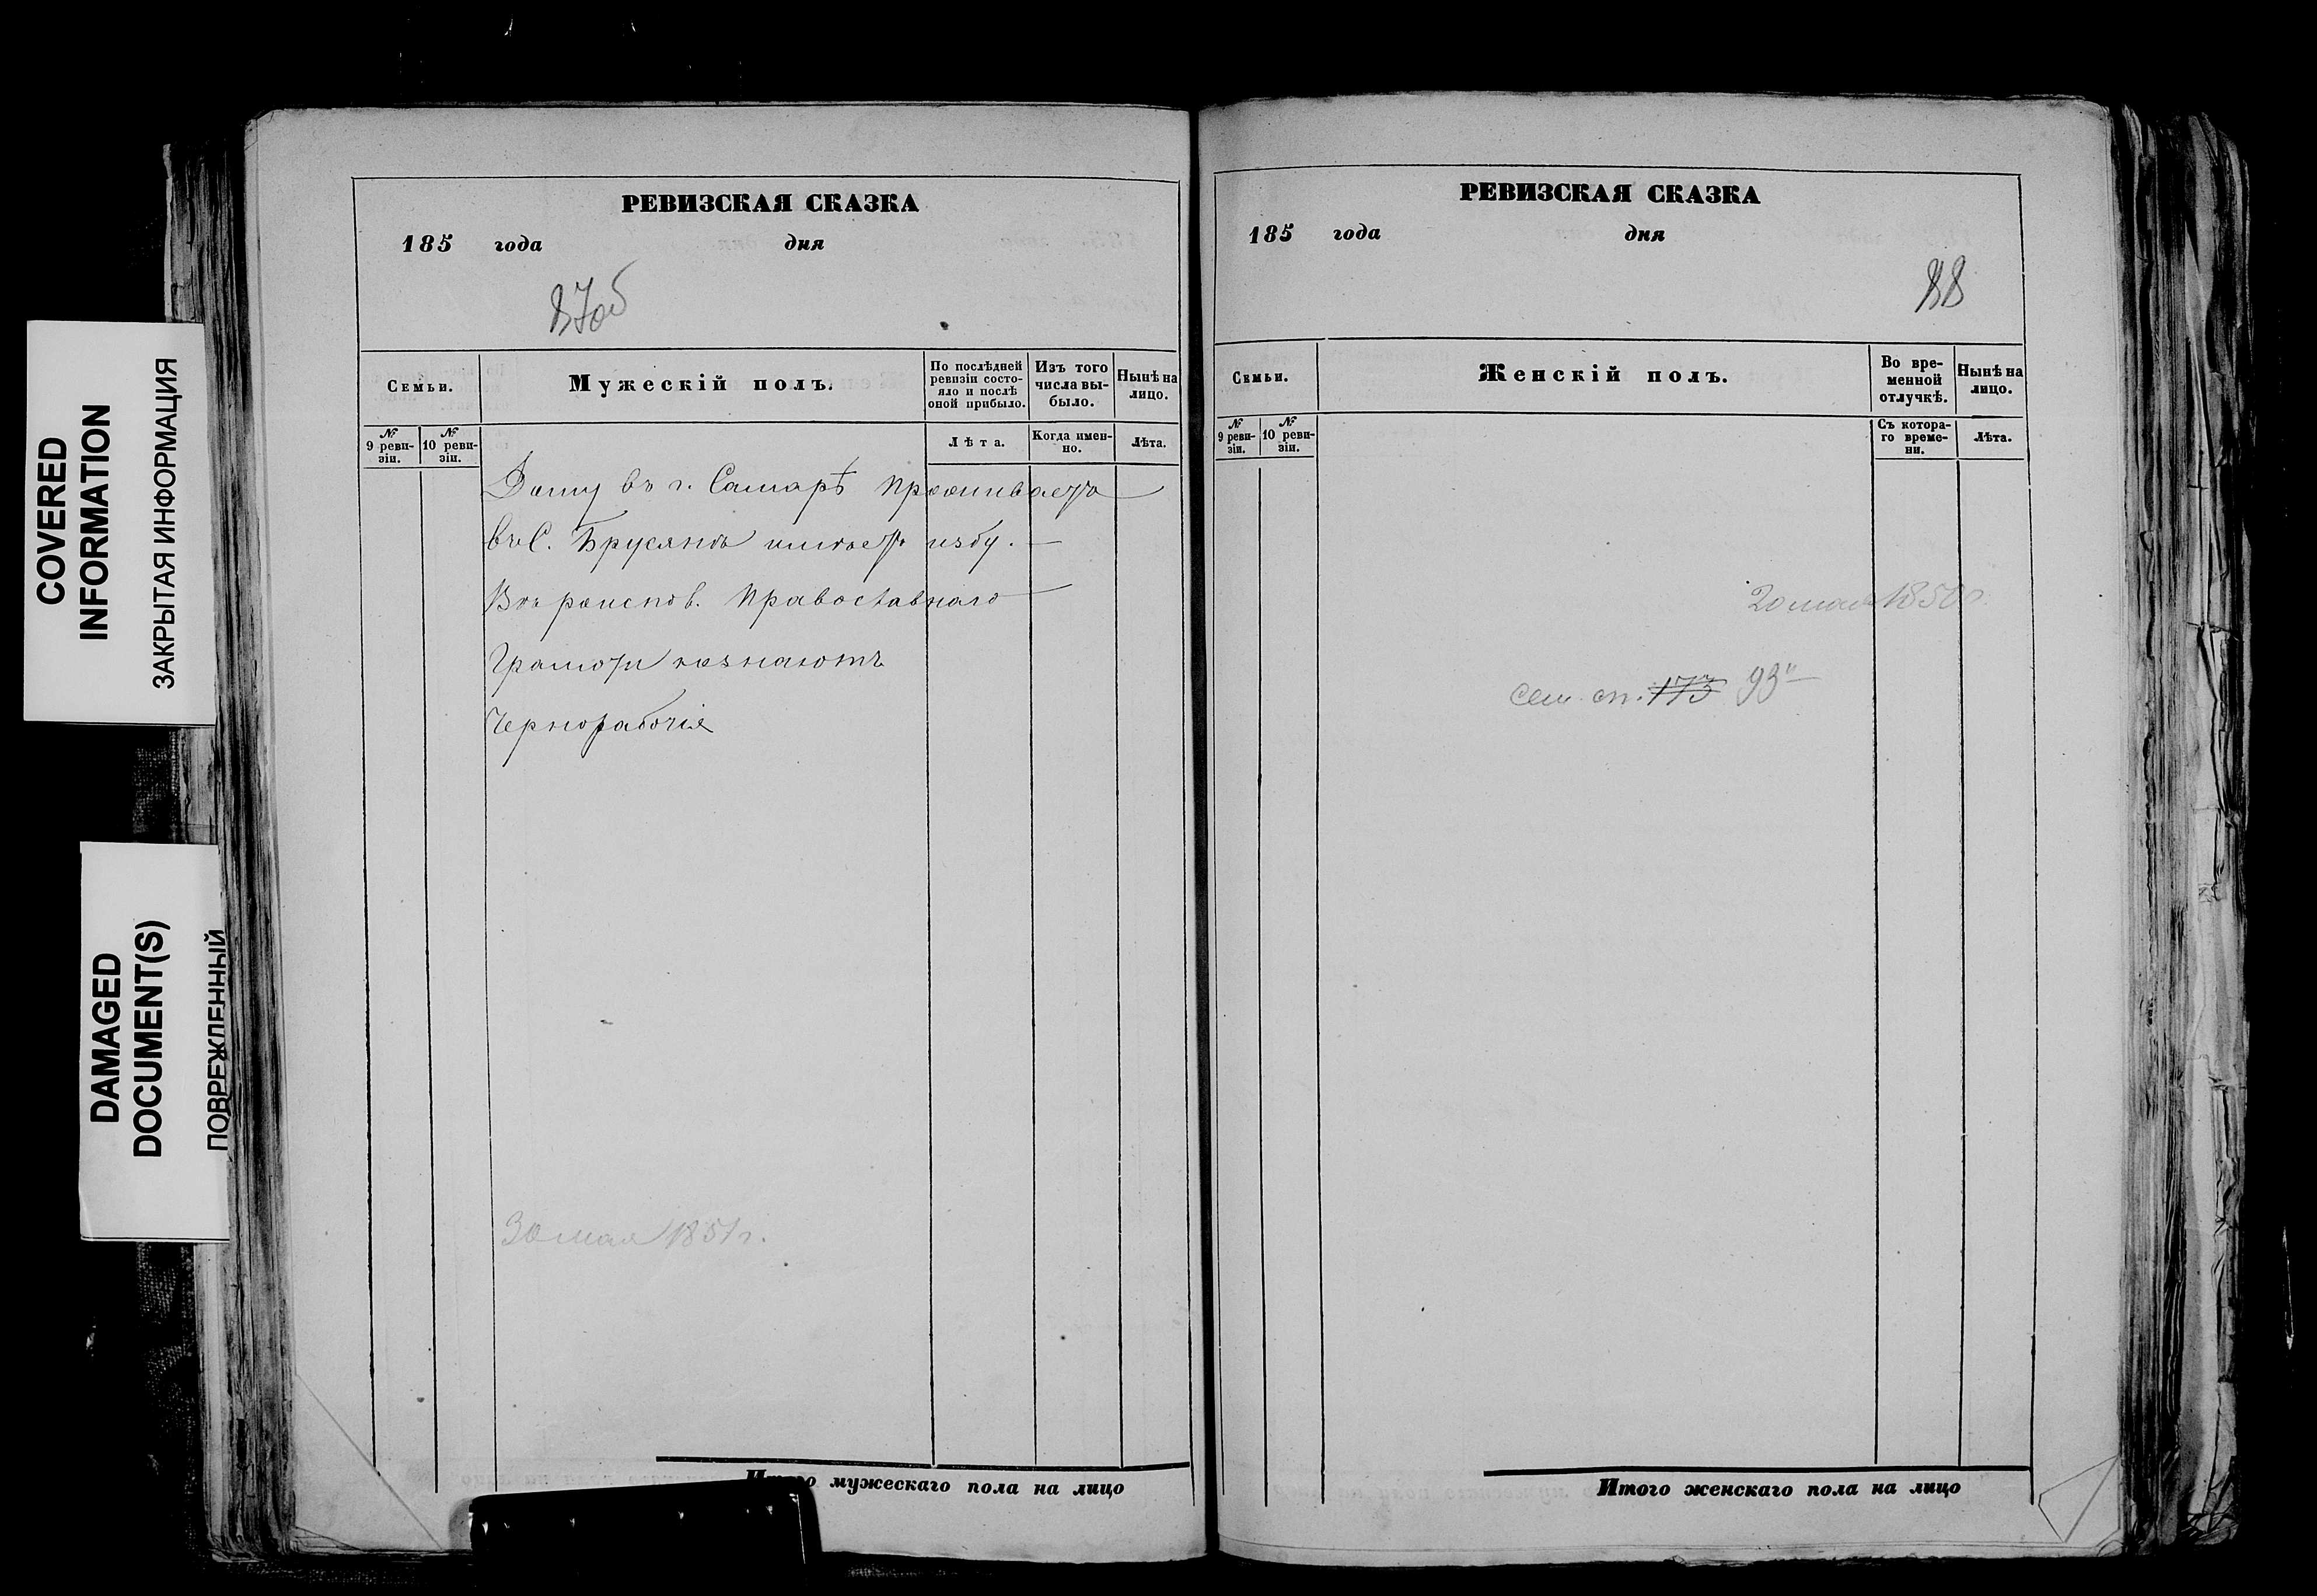 COVERED
INFORMATION
ЗАКРЫТАЯ ИНФОРМАЦИЯ
DAMAGED
DOCUMENT(S)
ПОВРЕЖДЕННЫЙ
РЕВИЗСКАЯ СКАЗКА
185 года дня
87об
Семьи.
Мужескій полъ.
По послѣдней
ревизіи состо-
яло и послѣ
оной прибыло.
Изъ того
числа вы-
было.
Нынѣ на
лицо.
№
9 реви-
зіи.
№
10 реви-
зіи.
Лѣта.
Когда имен-
но.
Лѣта.
въ г. Самарѣ проживаетъ
въ С. Брусянъ имѣетъ избу.
Вѣроисповѣ. Православнаго
Грамоти незнаютъ
Чернорабочіе
30 мая 1851 г.
Итого мужескаго пола на лицо
РЕВИЗСКАЯ СКАЗКА
185 года дня
88
Семьи.
Женскій полъ.
Во вре-
менной
отлучкѣ.
Нынѣ на
лицо.
№
9 реви-
зіи.
№
10 реви-
зіи.
Съ котора-
го време-
ни.
Лѣта.
20 мая 1850 г.
сем. сп. 173 93
Итого женскаго пола на лицо